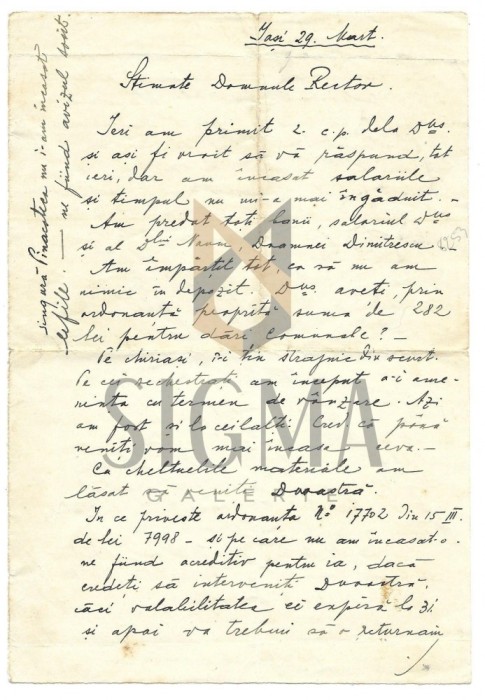 Iași 29. Mart.
Stimate Domnule Rector.
Ieri am primit 2. c.p. dela Dvs.
și ași fi vroit să vă răspund, tot
ieri, dar am încasat salariile
și timpul nu mi-a mai îngăduit. -
Am predat toți banii, salariul Dvs
și al Dlui Naum, Doamnei Dimitrescu
Am împărțit tot, ca să nu am
nimic în depozit. Dvs. aveți, prin
ordonanță proprită suma de 282
lei pentru dări Comunale? -
Pe chiriași, îi țin strașnic din scurt.
Pe cei sechestrați am început a-i ame-
nința cu termen de vânzare. Azi
am fost și la ceilalți. Cred că până
veniți vom mai încasa ceva. -
Cu cheltuelile materiale am
lăsat să veniți Dvoastră.
In ce privește ordonanța No 17702 din 15 III.
de lei 7998 - și pe care nu am încasat-o
ne fiind acreditiv pentru ia, dacă
credeți să interveniți Dvoastră,
căci valabilitatea ei expiră la 31
și apoi va trebui să o returnăm
singură Pinacoteca nu i-am încasat
lefile. - ne fiind avizul sosit.
SIGMA
GALERIE